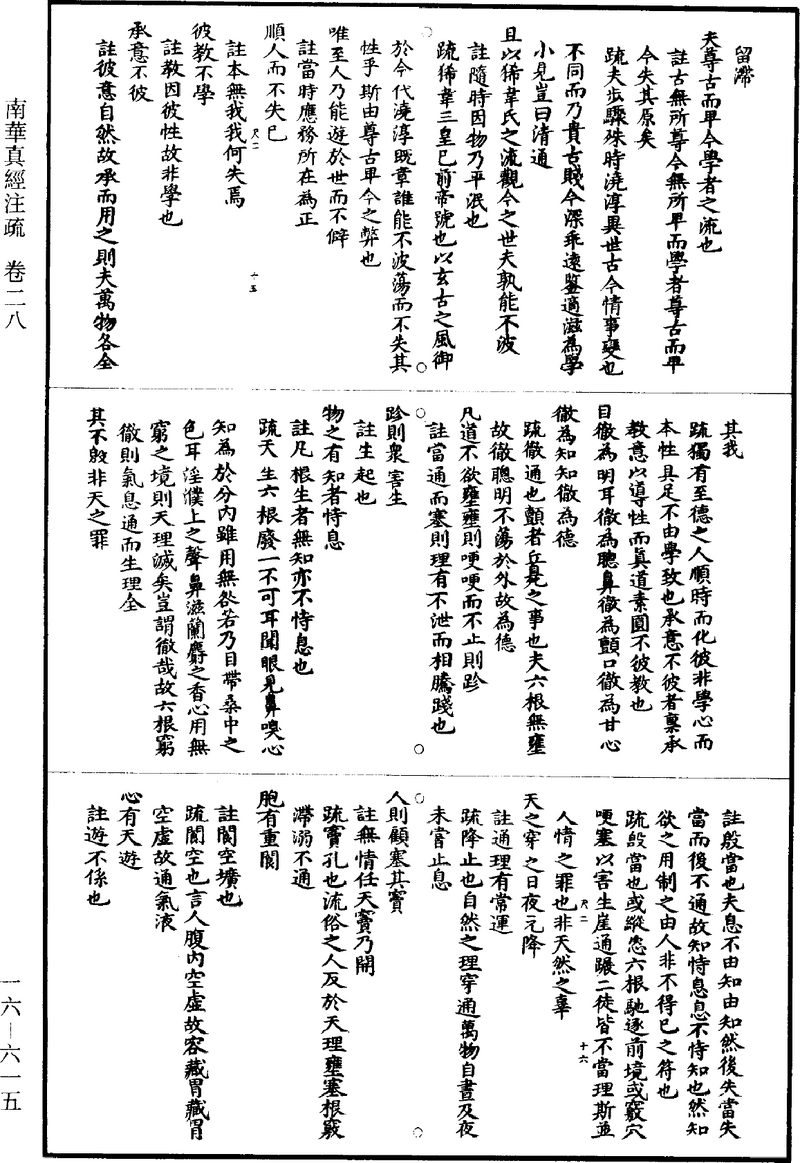 南華真經注疏　卷二八
留滯
夫尊古而卑今學者之流也
註古無所尊今無所卑而學者尊古而卑
今失其原矣
疏夫步驟殊時澆淳異世古今情事變也
不同而乃貴古賤今深乖遠鑒適滋為學
小見豈曰清通
且以狶韋氏之流觀今之世夫孰能不波
註隨時因物乃平泯也
疏狶韋三皇已前帝號也以玄古之風御
於今代澆淳既章誰能不波蕩而不失其
性乎斯由尊古卑今之弊也
唯至人乃能遊於世而不僻
註當時應務所在為正
順人而不失己
尺二
註本無我我何失焉
十五
彼教不學
註教因彼性故非學也
承意不彼
註彼意自然故承而用之則夫萬物各全
其我
疏獨有至德之人順時而化彼非學心而
本性具足不由學致也承意不彼者稟承
教意以導性而真道素圓不彼教也
目徹為明耳徹為聰鼻徹為顫口徹為甘心
徹為知知徹為德
疏徹通也顫者辛臭之事也夫六根無壅
故徹聰明不蕩於外故為德
凡道不欲壅壅則哽哽而不止則跈
註當通而塞則理有不泄而相騰踐也
跈則衆害生
註生起也
物之有知者恃息
註凡根生者無知亦不恃息也
疏天生六根廢一不可耳聞眼見鼻嗅心
知為於分內雖用無咎若乃目滯桑中之
色耳淫濮上之聲鼻滋蘭麝之香心用無
窮之境則天理滅矣豈謂徹哉故六根窮
徹則氣息通而生理全
其不殷非天之罪
註殷當也夫息不由知由知然後失當失
當而後不通故知恃息息不恃知也然知
欲之用制之由人非不得已之符也
疏殷當也或縱恣六根馳逐前境或竅穴
哽塞以害生崖通蹍二徒皆不當理斯並
人情之罪也非天然之辜
尺二
十六
天之穿之日夜无降
註通理有常運
疏降止也自然之理穿通萬物自晝及夜
未嘗止息
人則顧塞其竇
註無情任天竇乃開
疏竇孔也流俗之人反於天理壅塞根竅
滯溺不通
胞有重閬
註閬空壙也
疏閬空也言人腹內空虛故容藏胃藏胃
空虛故通氣液
心有天遊
註遊不係也
一六—六一五